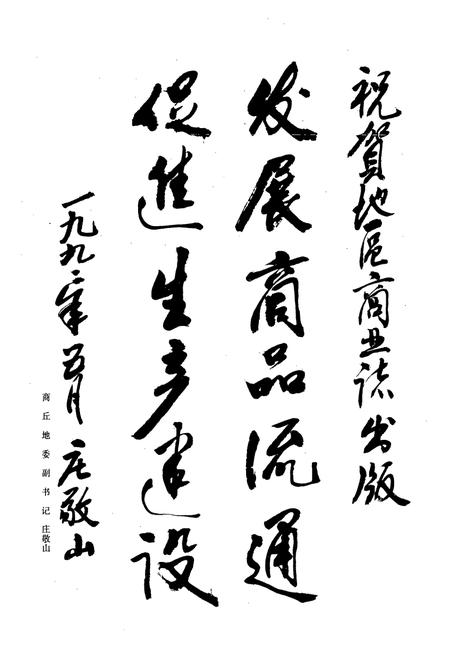 祝賀地區商业誌出版
发展商品流通
促進生产建设
一九九二年五月 庄敬山
商丘地委副书记庄敬山